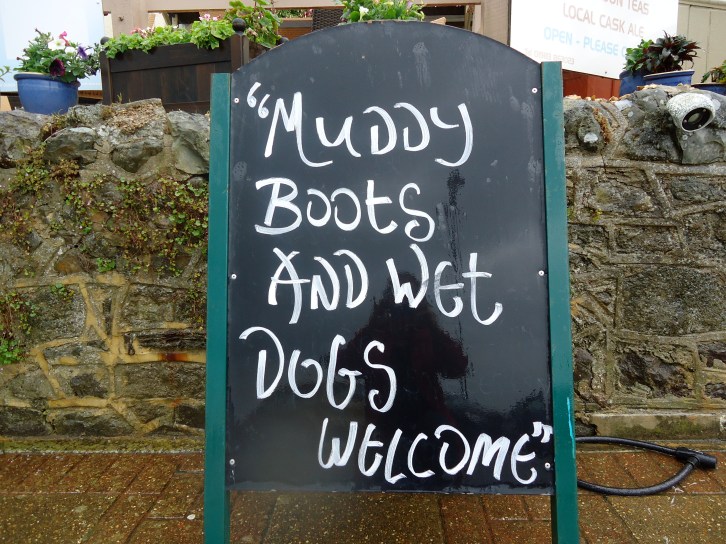 ON TEAS
LOCAL CASK ALE
OPEN - PLEASE
"MUDDY
BOOTS
AND WET
DOGS
WELCOME"